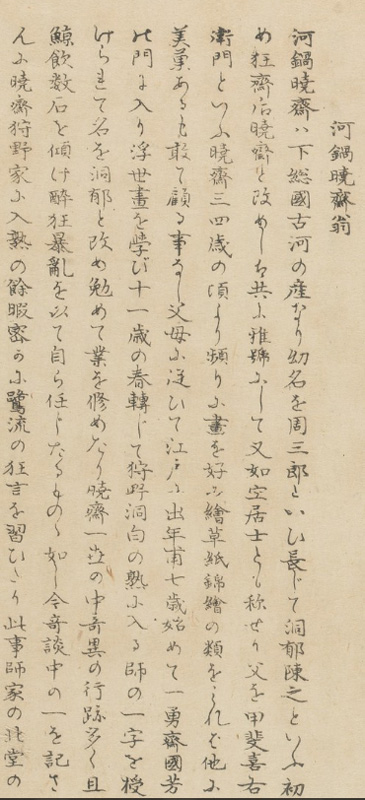 河鍋暁齋翁
河鍋暁齋ハ下総國古河の産なり幼名を周三郎といひ長じて洞郁陳之といふ初
め狂齋后暁齋と改めしも共に雅號にして又如空居士とも称せり父を甲斐喜右
衛門といふ暁齋三四歳の頃より頻りに畫を好み繪草紙錦繪の類をこれば他に
美菓あるも敢て顧る事なし父母に従ひて江戸に出年甫七歳始めて一勇齋國芳
の門に入り浮世畫を學び十一歳の春轉じて狩野洞白の熟に入る師の一字を授
けられて名を洞郁と改め勉めて業を修めたり暁齋一世の中奇異の行跡多く且
鯨飲数石を傾け酔狂暴亂を以て自ら任じたるものゝ如し今奇談中の一を記さ
んに暁齋狩野家に入熟の餘暇密かに鷺流の狂言を習ひたり此事師家の北堂の